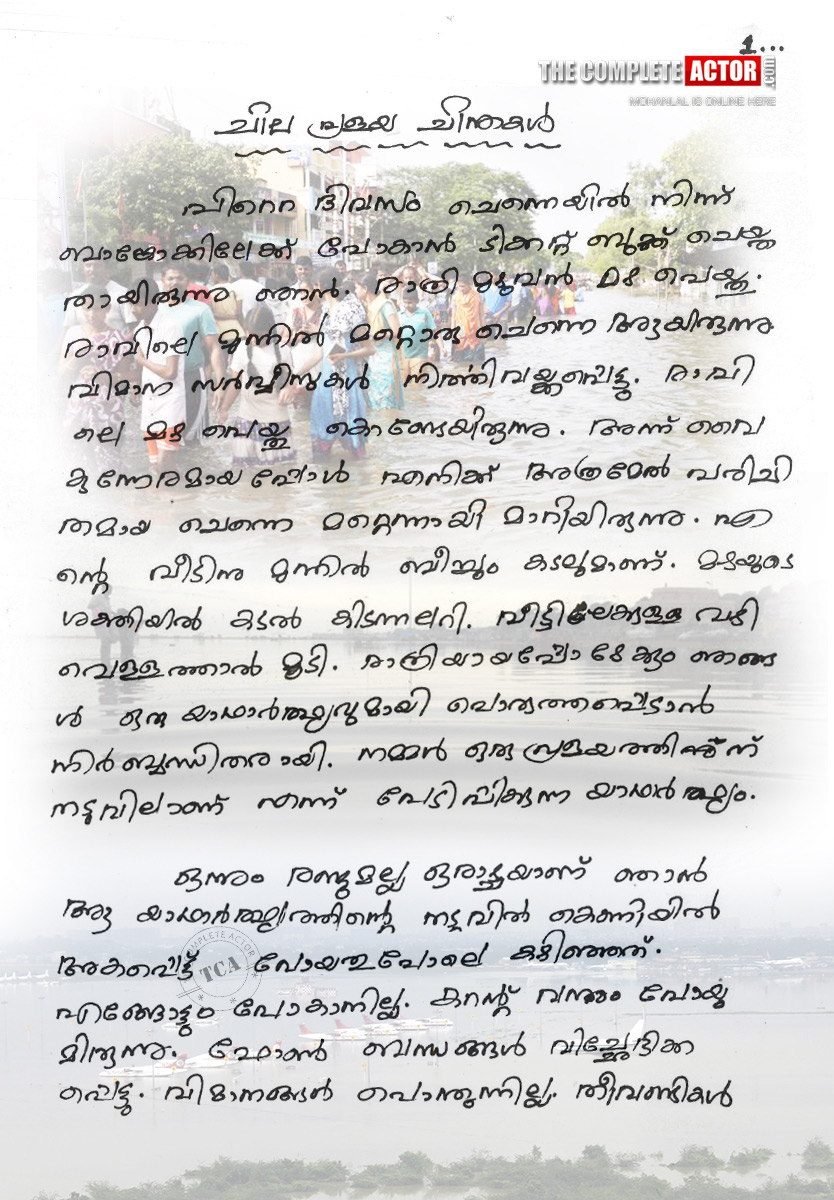 1...
THE COMPLETE ACTOR .com
MOHANLAL IS ONLINE HERE
ചില പ്രളയ ചിന്തകൾ
പിറ്റെ ദിവസം ചെന്നൈയിൽ നിന്ന്
ബാങ്കോക്കിലേക്ക് പോകാൻ ടിക്കറ്റ് ബുക്ക് ചെയ്ത
തായിരുന്നു ഞാൻ. രാത്രി മുഴുവൻ മഴ പെയ്തു.
രാവിലെ മുന്നിൽ മറ്റൊരു ചെന്നൈ ആയിരുന്നു
വിമാന സർവ്വീസുകൾ നിർത്തിവയ്ക്കപ്പെട്ടു. രാവി
ലെ മഴ പെയ്തു കൊണ്ടേയിരുന്നു. അന്ന് വൈ
കുന്നേരമായപ്പോൾ എനിക്ക് അത്രമേൽ പരിചി
തമായ ചെന്നൈ മറ്റെന്തായി മാറിയിരുന്നു. എ
ന്റെ വീടിനു മുന്നിൽ ബീച്ചും കടലുമാണ്. മഴയുടെ
ശക്തിയിൽ കടൽ കിടന്നലറി. വീട്ടിലേക്കുള്ള വഴി
വെള്ളത്താൽ മൂടി. രാത്രിയായപ്പോഴേക്കും ഞങ്ങ
ൾ ഒരു യാഥാർത്ഥ്യവുമായി പൊരുത്തപ്പെടാൻ
നിർബ്ബന്ധിതരായി. നമ്മൾ ഒരു പ്രളയത്തിന്
നടുവിലാണ് എന്ന് പേടിപ്പിക്കുന്ന യാഥാർത്ഥ്യം.
ഒന്നും രണ്ടുമല്ല ഒരാഴ്ചയാണ് ഞാൻ
ആ യാഥാർത്ഥ്യത്തിന്റെ നടുവിൽ കെണിയിൽ
അകപ്പെട്ട് പോയതുപോലെ കഴിഞ്ഞത്.
എങ്ങോട്ടും പോകാനില്ല. കറന്റ് വന്നും പോയു
മിരുന്നു. ഫോൺ ബന്ധങ്ങൾ വിച്ഛേദിക്ക
പ്പെട്ടു. വിമാനങ്ങൾ പൊന്തുന്നില്ല. തീവണ്ടികൾ
COMPLETE ACTOR
TCA